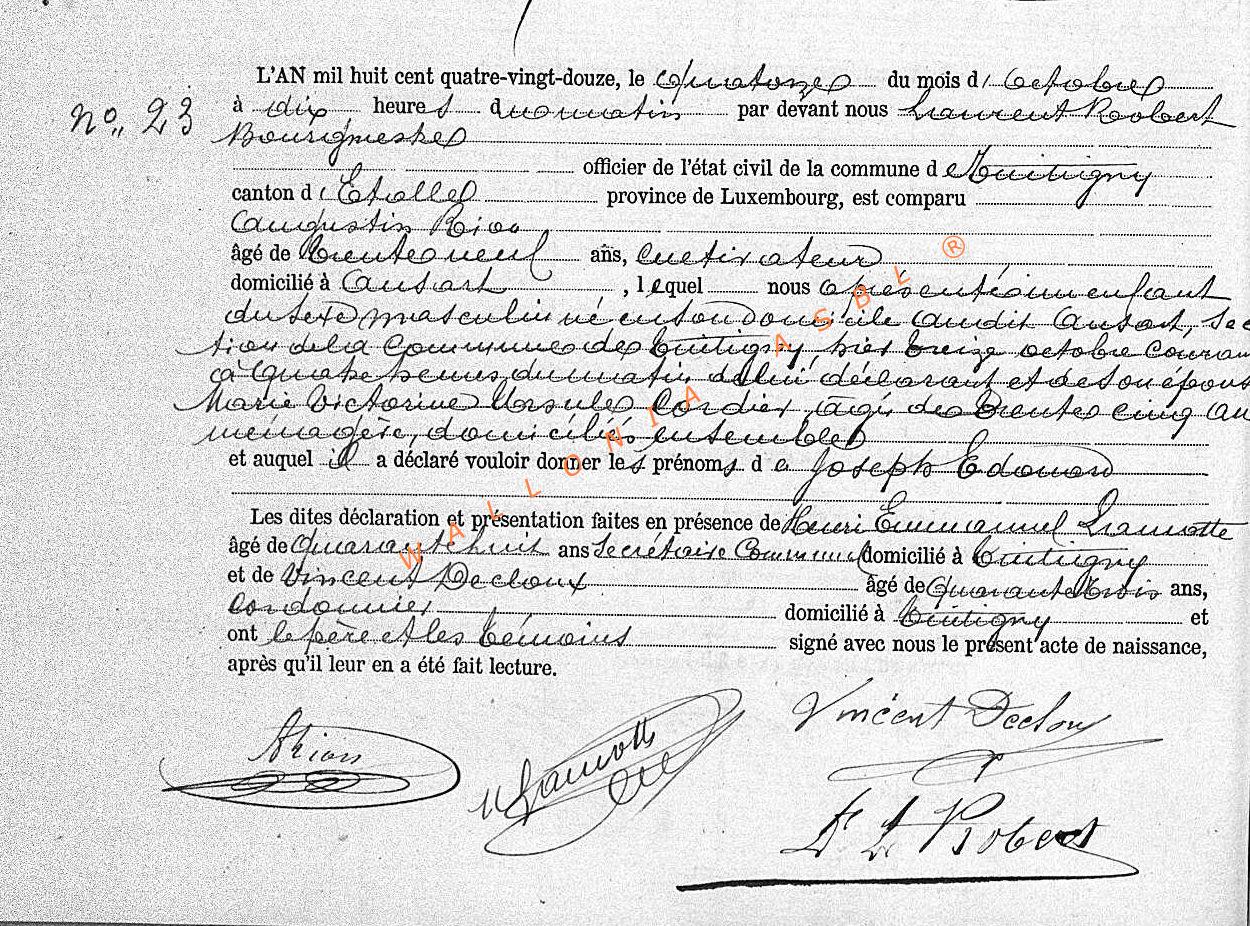 L'AN mil huit cent quatre-vingt-douze, le quatorze du mois d'octobre
No. 23
à dix heures du matin par devant nous Laurent Robert
Bourgmestre
officier de l'état civil de la commune de Tintigny
canton d'Etalle province de Luxembourg, est comparu
Augustin Rion
âgé de trente neuf ans, cultivateur
domicilié à Ansart, lequel nous a présenté un enfant
du sexe masculin né en son domicile audit Ansart, sec
tion de la commune de Tintigny, hier treize octobre couran
à quatre heures du matin de lui déclarant et de son épous
Marie Victorine Ursule Cordier, âgée de trente cinq an
ménagère, domiciliés ensemble
et auquel il a déclaré vouloir donner les prénoms de Joseph Edouard
Les dites déclaration et présentation faites en présence de Henri Emmanuel Lamotte
âgé de quarante huit ans Secrétaire Communal domicilié à Tintigny
et de Vincent Decloux âgé de quarante trois ans,
cordonnier domicilié à Tintigny et
ont le père et les témoins signé avec nous le présent acte de naissance,
après qu'il leur en a été fait lecture.
WALLONIA ASBL ®
ARion
Lamotte
Vincent Decloux
Robert